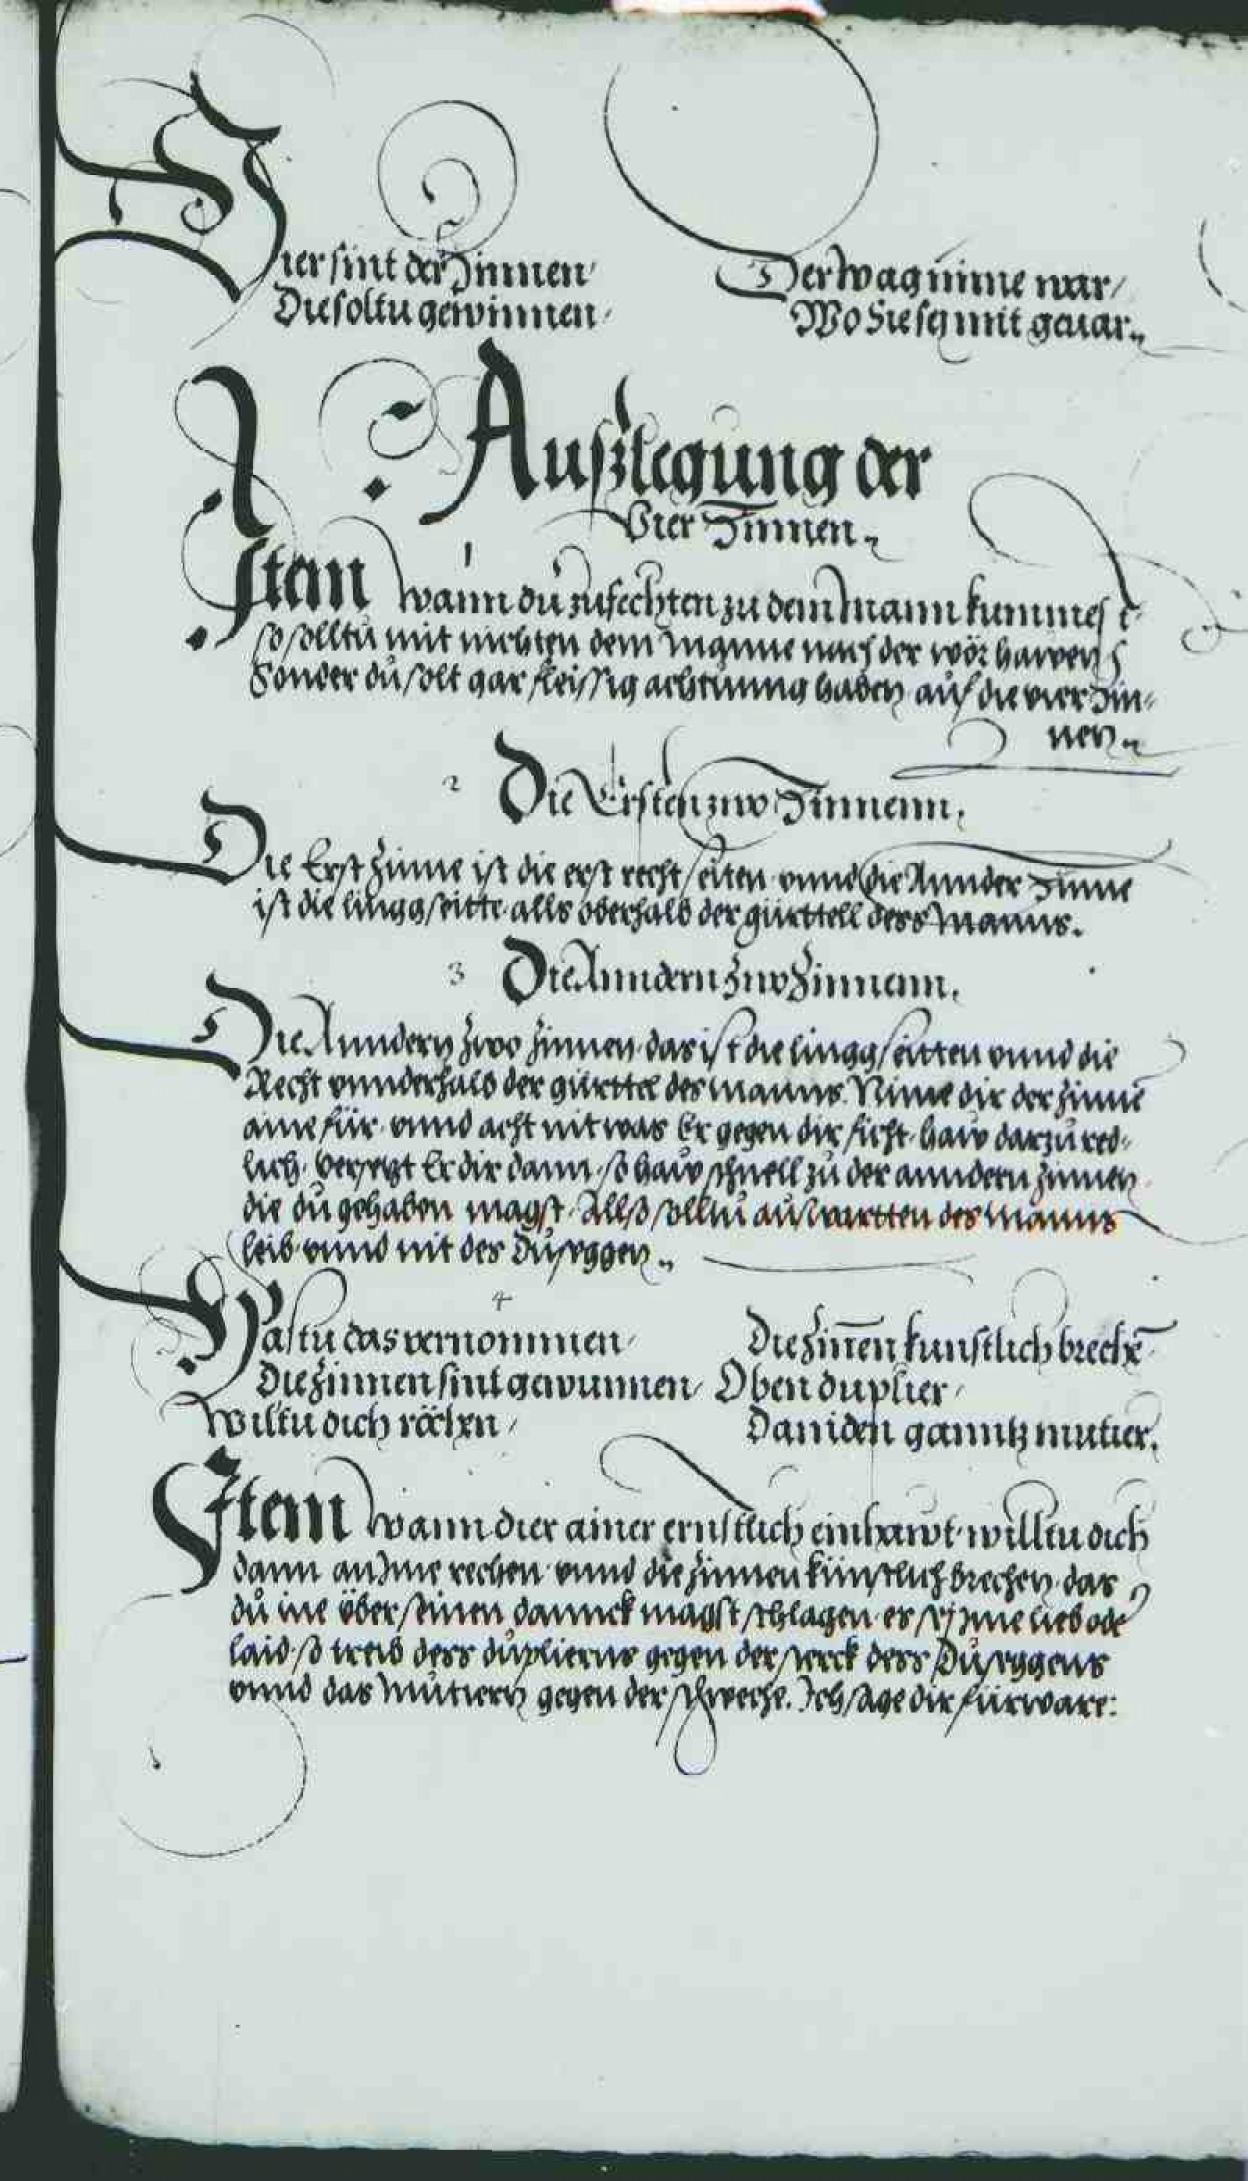 Vier sint der Zinnen /
Die soltu gewinnen /
Der wag nime war /
Wo Sie sej mit geuar
Außlegung der
Vier Zinnen
1
Item wann du zufechten zu dem Mann kummest
so solltu mit nichten dem Manne nach der wör hawen
Sonder du solt gar fleissig achtunng haben auf die vier Zin-
nen
2 Die Ersten zwo Zinnenn.
Die Erst Zinne ist die erst recht seiten vnnd die Annder Zinne
ist die lingg seitte alls oberhalb der gürttell dess Manns.
3 Die Anndern zwo Zinnenn.
Die Anndern zwo Zinnen das ist die lingg seitten vnnd die
Recht vnnderhalb der gürttel des manns. Nime dir der Zinne
aine für vnnd acht nit was Er gegen dir ficht haw darzu red-
lich versezt Er dir dann so haw schnell zu der anndern Zinnen
die du gehaben magst Allso solltu auswartten des Manns
leib vnnd nit des Duseggen
4
Hastu das vernommen /
Die Zinnen sint gewunnen /
Wiltu dich rechen /
Die Zin̄en kunstlich breche͂
Oben duplier /
Daniden ganntz mutier.
Item wann dier ainer ernstlich einhawt willtu dich
dann an Ime rechen vnnd die Zinnen künstlich brechen das
du ine über seinen dannck magst schlagen es sej Ime lieb ode
laid so treib dess duplierns gegen der sterck dess Duseggens
vnnd das Mutiern gegen der schweche. Ich sage dir fürware: